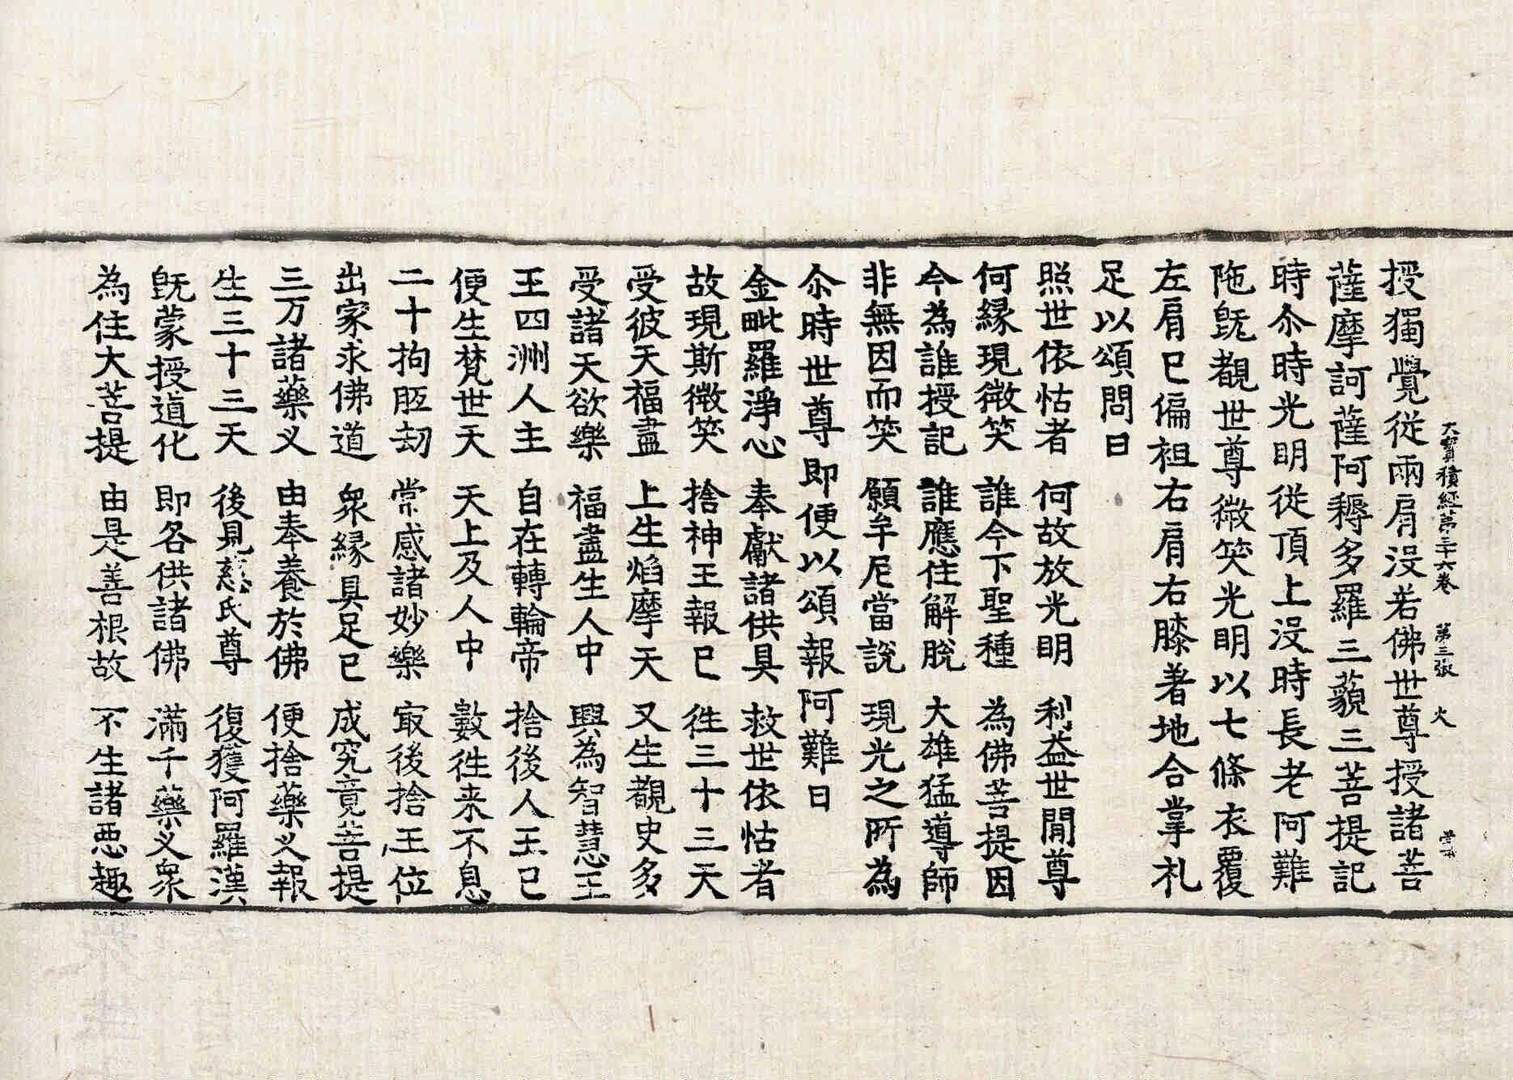 大寶積經第三十六卷 第三張 火
授獨覺從兩肩沒若佛世尊授諸菩
薩摩訶薩阿耨多羅三藐三菩提記
時尒時光明從頂上沒時長老阿難
陁旣覩世尊微笑光明以七條衣覆
左肩已偏袒右肩右膝著地合掌礼
足以頌問曰
照世依怙者 何故放光明 利益世間尊
何緣現微笑 誰今下聖種 為佛菩提因
今為誰授記 誰應住解脫 大雄猛導師
非無因而笑 願牟尼當說 現光之所為
尒時世尊即便以頌報阿難曰
金毗羅淨心 奉獻諸供具 救世依怙者
故現斯微笑 捨神王報已 徃三十三天
受彼天福盡 上生焰摩天 又生覩史多
受諸天欲樂 福盡生人中 興為智慧王
王四洲人主 自在轉輪帝 捨後人王已
便生梵世天 天上及人中 數徃来不息
二十拘胝劫 常感諸妙樂 㝡後捨王位
出家求佛道 衆緣具足已 成究竟菩提
三万諸藥义 由奉養於佛 便捨藥义報
生三十三天 後見慈氏尊 復獲阿羅漢
旣蒙授道化 即各供諸佛 滿千藥义衆
為住大菩提 由是善根故 不生諸惡趣